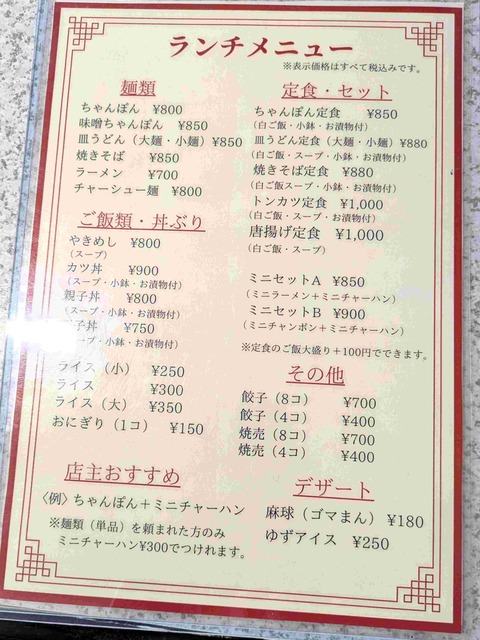 ランチメニュー
※表示価格はすべて税込みです。
麺類
ちゃんぽん ¥800
味噌ちゃんぽん ¥850
皿うどん（大麺・小麺）¥850
焼きそば ¥850
ラーメン ¥700
チャーシュー麺 ¥800
ご飯類・丼ぶり
やきめし ¥800
（スープ）
カツ丼 ¥900
（スープ・小鉢・お漬物付）
親子丼 ¥800
（スープ・小鉢・お漬物付）
子丼 ¥750
スープ・小鉢・お漬物付）
ライス（小） ¥250
ライス ¥300
ライス（大） ¥350
おにぎり（1コ） ¥150
店主おすすめ
〈例〉ちゃんぽん＋ミニチャーハン
※麺類（単品）を頼まれた方のみ
ミニチャーハン¥300でつけれます。
定食・セット
ちゃんぽん定食 ¥850
（白ご飯・小鉢・お漬物付）
皿うどん定食（大麺・小麺）¥880
（白ご飯・スープ・小鉢・お漬物付）
焼きそば定食 ¥880
（白ご飯スープ・小鉢・お漬物付）
トンカツ定食 ¥1,000
（白ご飯・スープ・お漬物付）
唐揚げ定食 ¥1,000
（白ご飯・スープ）
ミニセットA ¥850
（ミニラーメン＋ミニチャーハン）
ミニセットB ¥900
（ミニチャンポン＋ミニチャーハン）
※定食のご飯大盛り＋100円でできます。
その他
餃子（8コ） ¥700
餃子（4コ） ¥400
焼売（8コ） ¥700
焼売（4コ） ¥400
デザート
麻球（ゴマまん）¥180
ゆずアイス ¥250